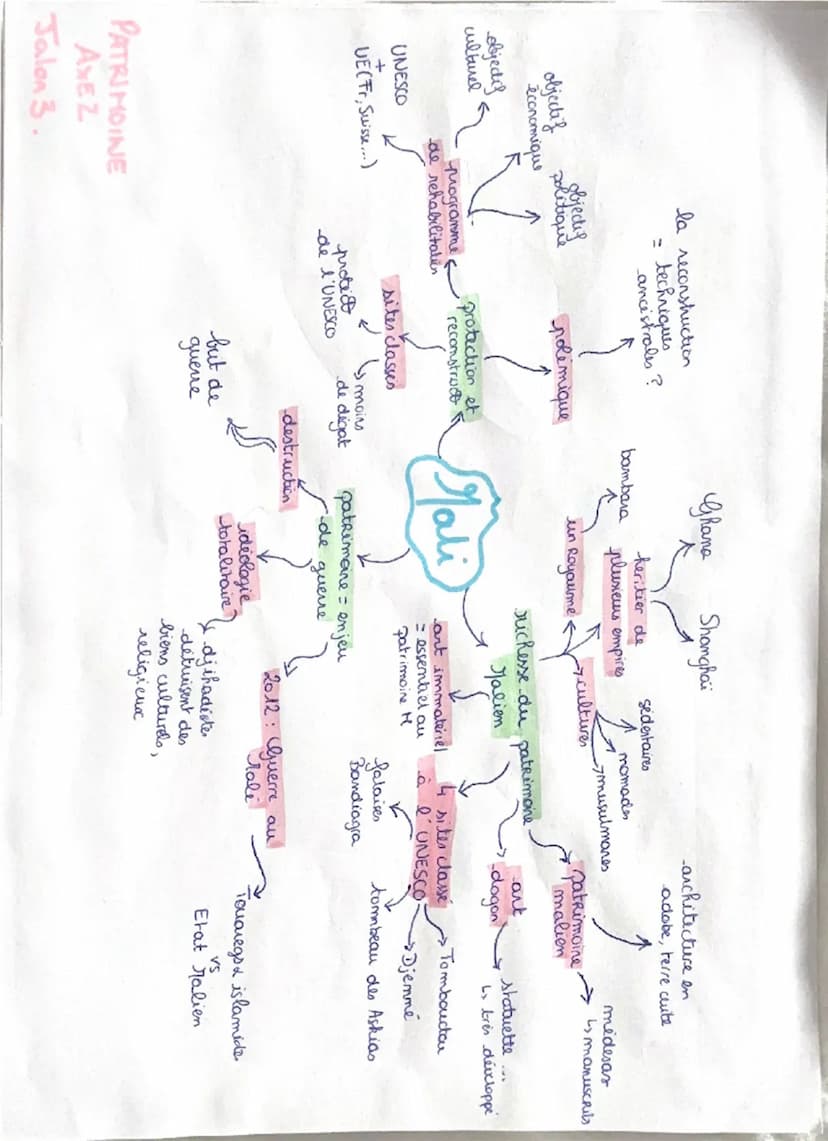 PATRIMOINE
AXE 2
Jalon 3.
Mali
protection et
reconstruct°
programme
de rehabilitation
objectif
culturel
objectif
économique
objectif
politique
UNESCO
+
UE (Fr, Suisse,...)
sites classés
protect°
de l'UNESCO
↳ moins
de dégat
polémique
la reconstruction
= techniques
ancestrales ?
richesse du patrimoine
Malien
un royaume
bambara
heritier de
plusieurs empires
Ghana
Shonghaï
cultures
sédestaires
nomades
musulmanes
patrimoine
malien
architecture en
adobe, terre cuite
médersas
↳ manuscrits
art
dogon
statuette ...
↳ très développé
4 sites classé
à l'UNESCO
Tombouctou
Djenné
tombeau des Askias
falaises
Bandiagra
art immateriel
= essentiel au
patrimoine M
patrimoine = enjeu
de guerre
destruction
but de
guerre
idéologie
totalitaire
djihadistes
détruisent des
biens culturels,
religieux
2012 : Guerre au
Mali
Touaregs & islamiste
vs
Etat Malien